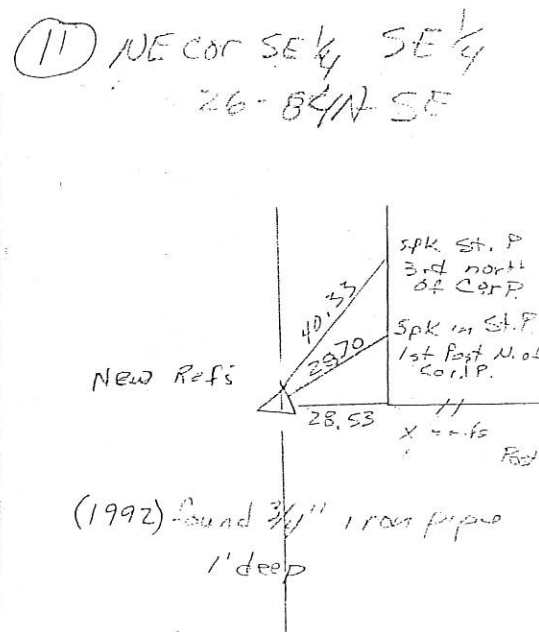 11 NE cor SE 1/4 SE 1/4
26-84N 5E
spk St. P
3rd north
of Cor P.
40.33
Spk in St. P.
1st Post N. of
Cor. P.
29.70
New Refs
28.53
X
Post
(1992) found 3/4" iron pipe
1' deep